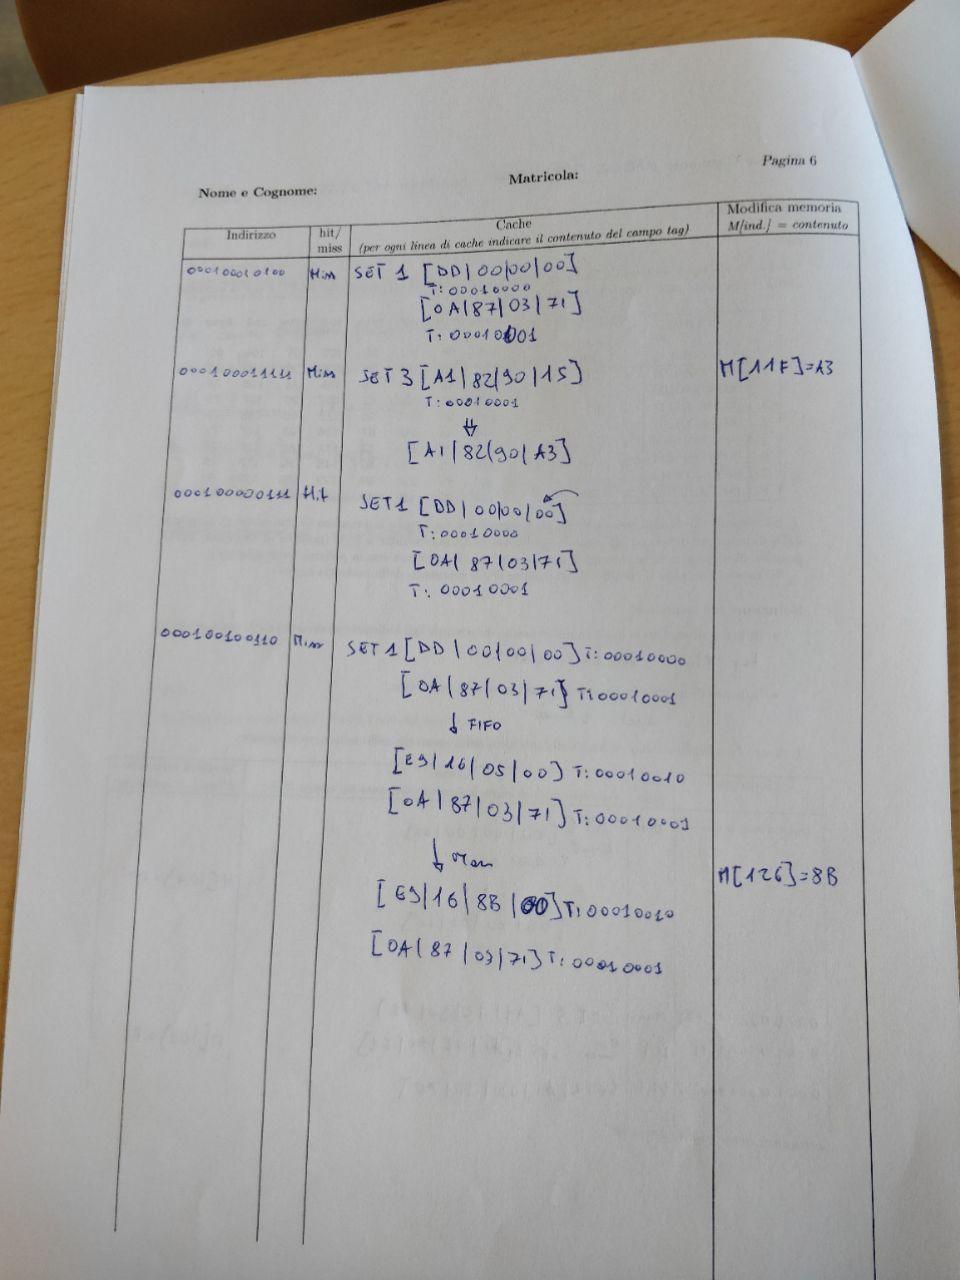 Pagina 6
Nome e Cognome: Matricola:
Indirizzo hit/ miss Cache (per ogni linea di cache indicare il contenuto del campo tag) Modifica memoria M[ind.] = contenuto
000100010100 Miss SET 1 [DD|00|00|00]
T: 00010000
[0A|87|03|71]
T: 00010001
000100011111 Miss SET 3 [A1|82|90|15] M[11F]=A3
T: 00010001
⇓
[A1|82|90|A3]
000100000111 Hit SET 1 [DD|00|00|00]
T: 00010000
[0A|87|03|71]
T: 00010001
000100100110 Miss SET 1 [DD|00|00|00] T: 00010000
[0A|87|03|71] T: 00010001
↓ FIFO
[E9|16|05|00] T: 00010010
[0A|87|03|71] T: 00010001
↓ M[126]=8B
[E9|16|8B|00] T: 00010010
[0A|87|03|71] T: 00010001